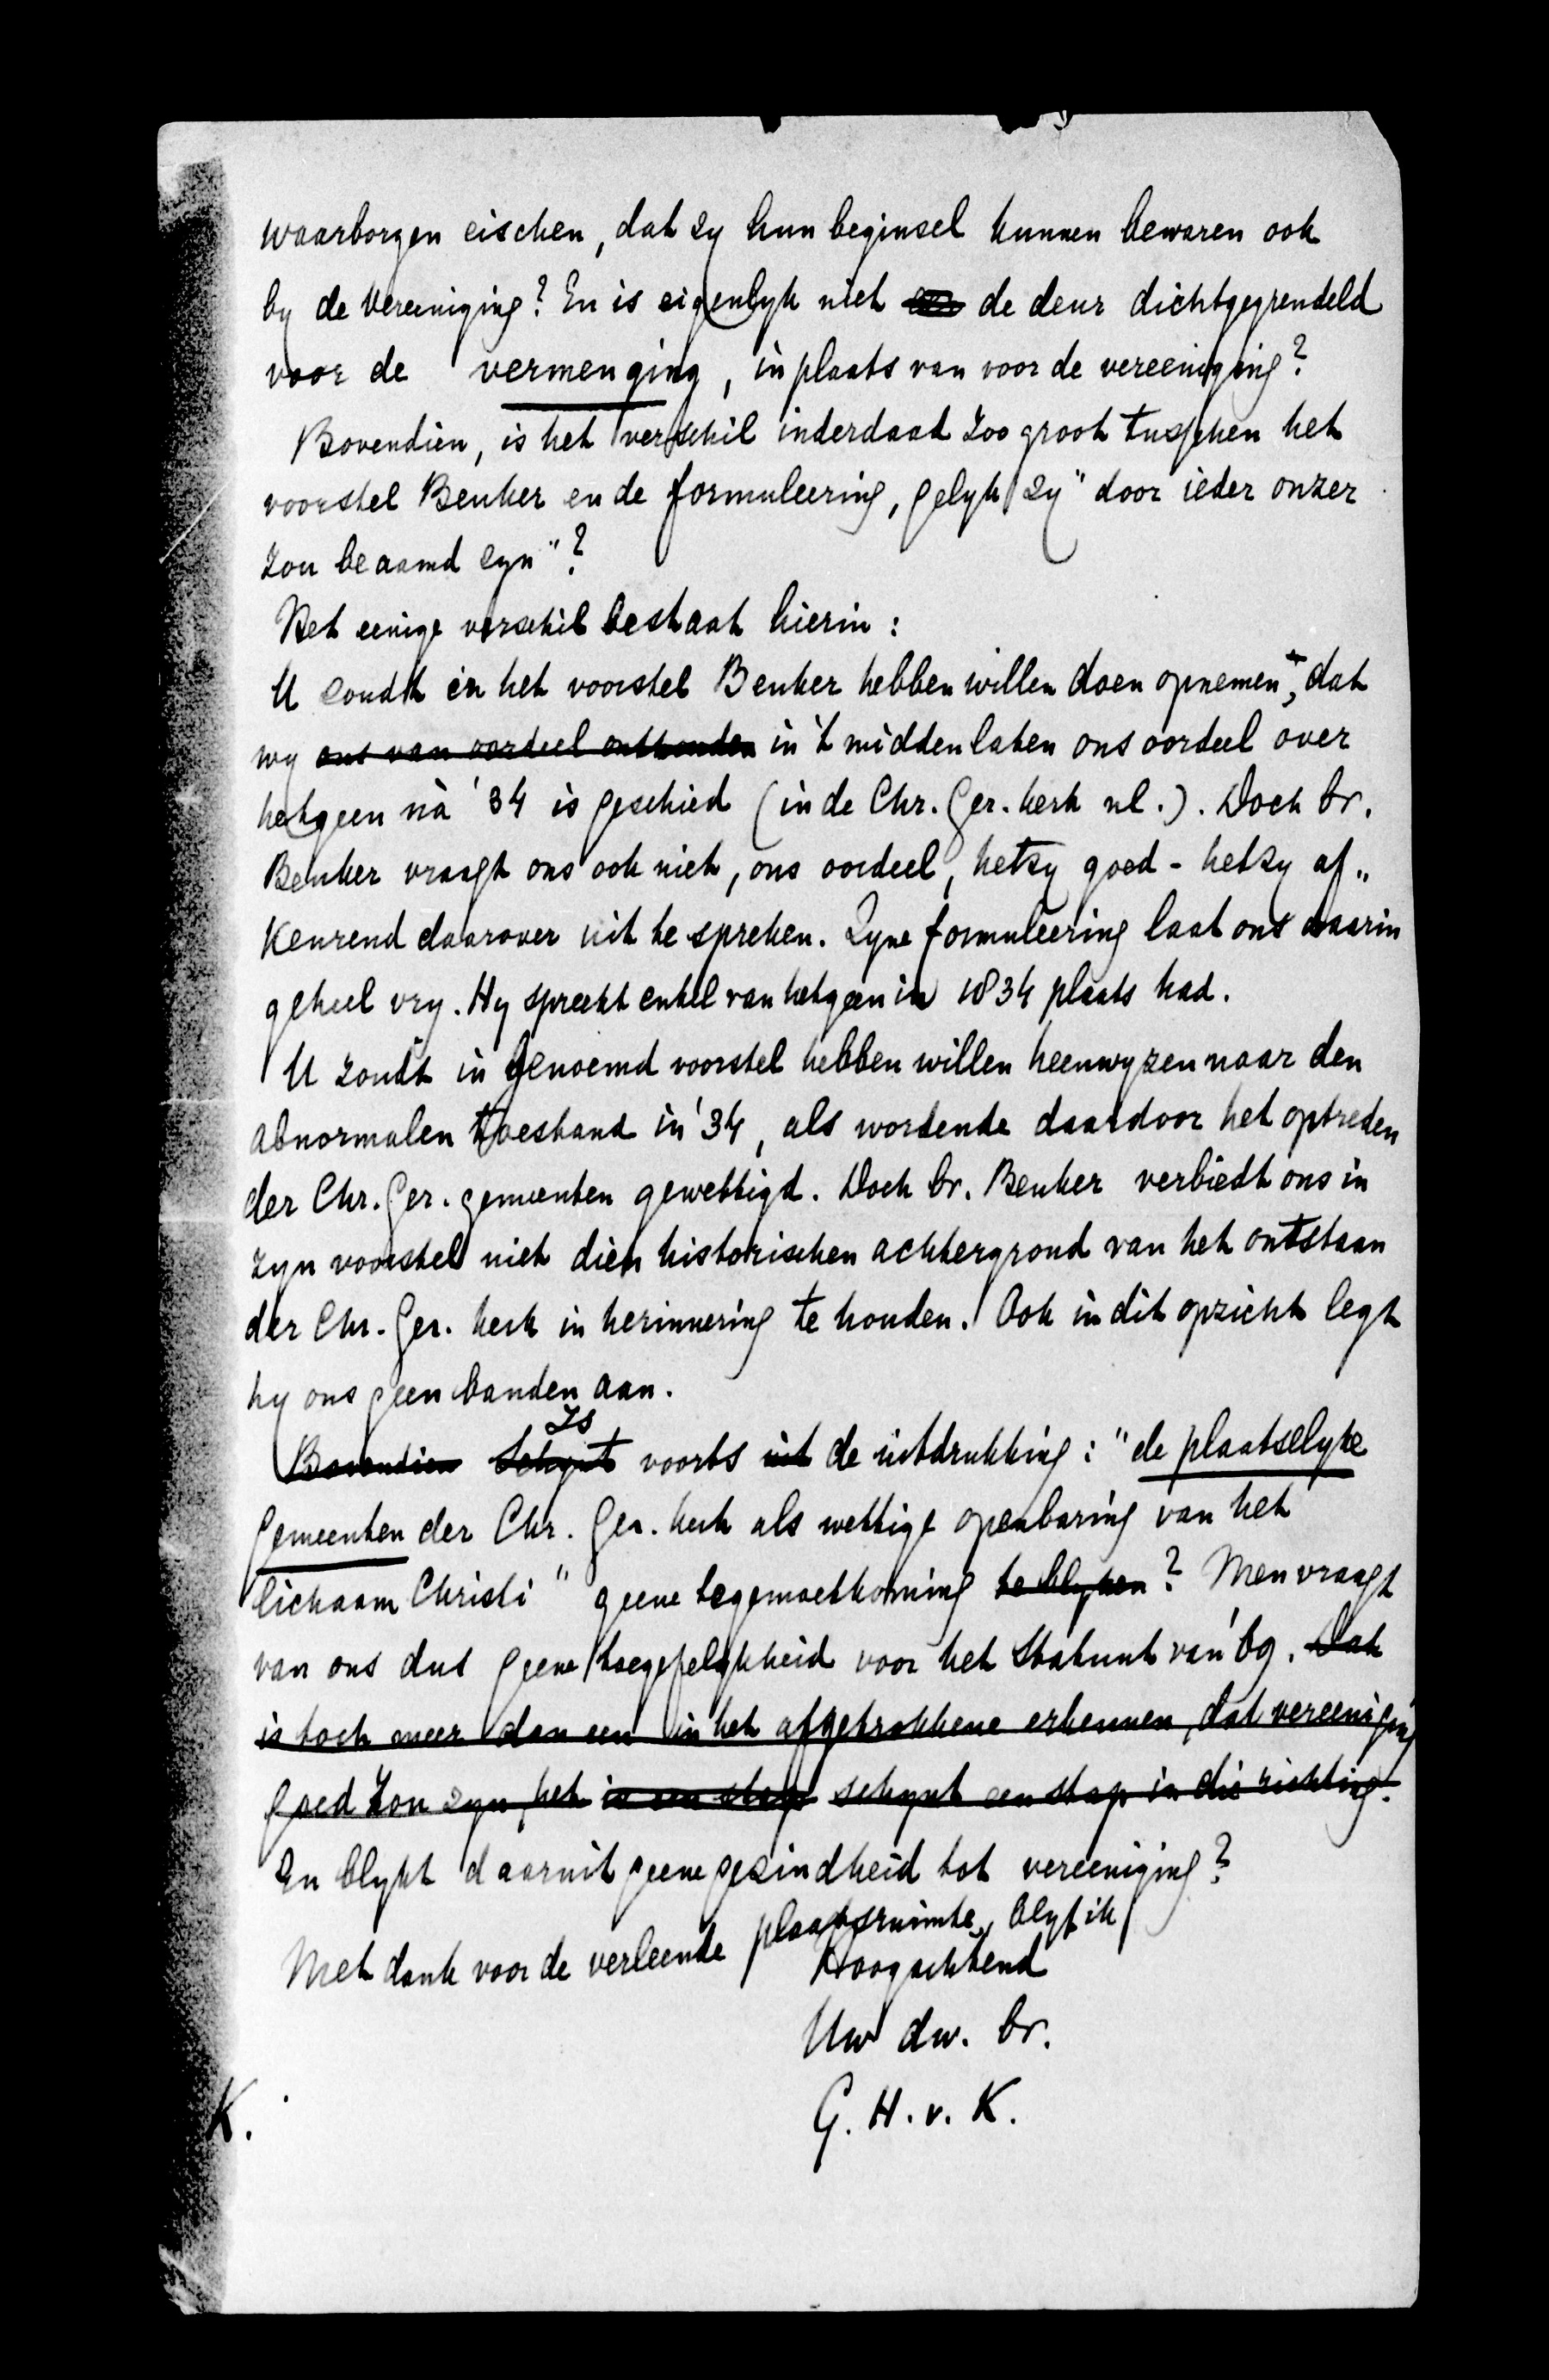 waarborgen eischen, dat zy hun beginsel kunnen bewaren ook
by de Vereeniging? En is eigenlyk niet de deur dichtgegrendeld
voor de vermenging, in plaats van voor de vereeniging?
Bovendien, is het verschil inderdaad zoo groot tusschen het
voorstel Beuker en de formuleering, gelyk zy "door ieder onzer
zou beaamd zyn"?
Het eenige verschil bestaat hierin:
U zoudt in het voorstel Beuker hebben willen doen opnemen, dat
wy ons van oordeel onthouden in 't midden laten ons oordeel over
hetgeen nà '34 is geschied (in de Chr. Ger. kerk nl.). Doch br.
Beuker vraagt ons ook niet, ons oordeel, hetzy goed- hetzy af„
keurend daarover uit te spreken. Zyne formuleering laat ons daarin
geheel vry. Hy spreekt enkel van hetgeen in 1834 plaats had.
U zoudt in genoemd voorstel hebben willen heenwyzen naar den
abnormalen toestand in '34, als wordende daardoor het optreden
der Chr. Ger. gemeenten gewettigd. Doch br. Beuker verbiedt ons in
zyn voorstel niet dien historischen achtergrond van het ontstaan
der Chr. Ger. kerk in herinnering te houden. Ook in dit opzicht legt
hy ons geen banden aan.
Is
Bovendien Schynt voorts uit de uitdrukking: "de plaatselyke
gemeenten der Chr. Ger. kerk als wettige openbaring van het
lichaam Christi" geene tegemoetkoming te blyken? Men vraagt
van ons dus geene toegefelykheid voor het Statuut van '69. Dat
is toch meer dan een in het afgetrokkene erkennen, dat vereeniging
goed zou zyn, het is een stap schynt een stap in die richting.
En blykt daaruit geene gezindheid tot vereeniging?
Met dank voor de verleende plaatsruimte, blyf ik
Hoogachtend
Uw dw. br.
G. H. v. K.
K.